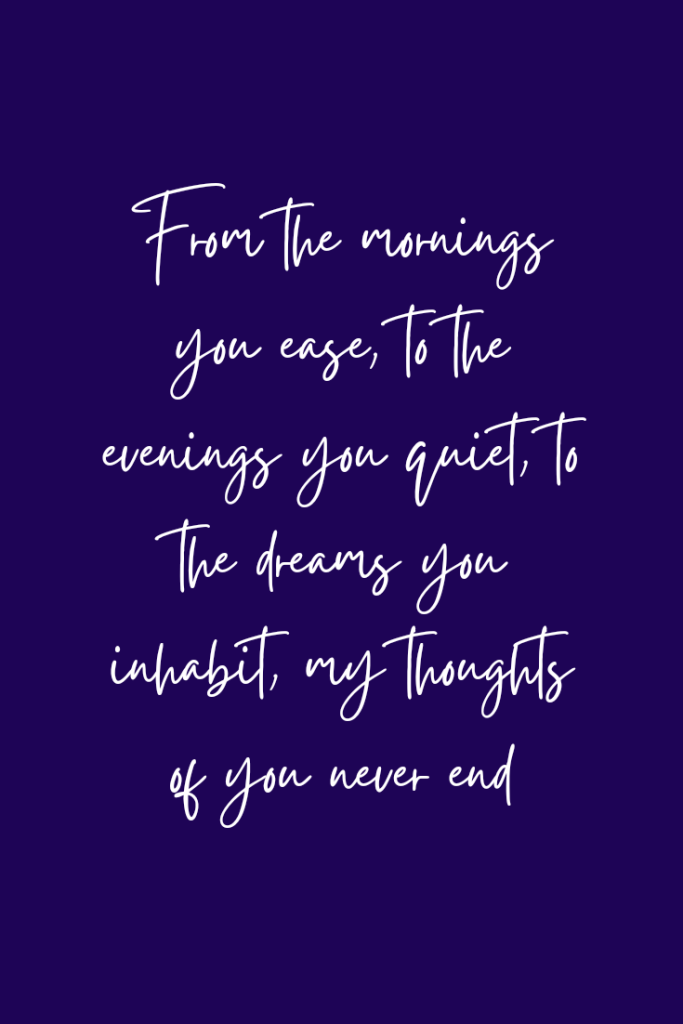 From the mornings
you ease, to the
evenings you quiet, to
the dreams you
inhabit, my thoughts
of you never end